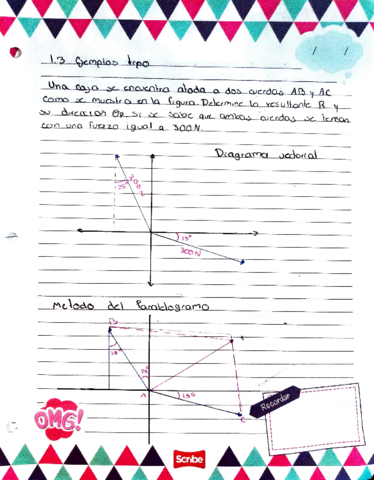 1.3 Ejemplos tipo
Una caja se encuentra atada a dos cuerdas AB y AC
como se muestra en la figura. Determine la resultante R y
su dirección θR. Si se sabe que ambas cuerdas se tensan
con una fuerza igual a 300N.
Diagrama vectorial
25°
300N
15°
300N
Metodo del Paralelogramo
B
25°
A
15°
C
Recordar
OMG!
Scribe